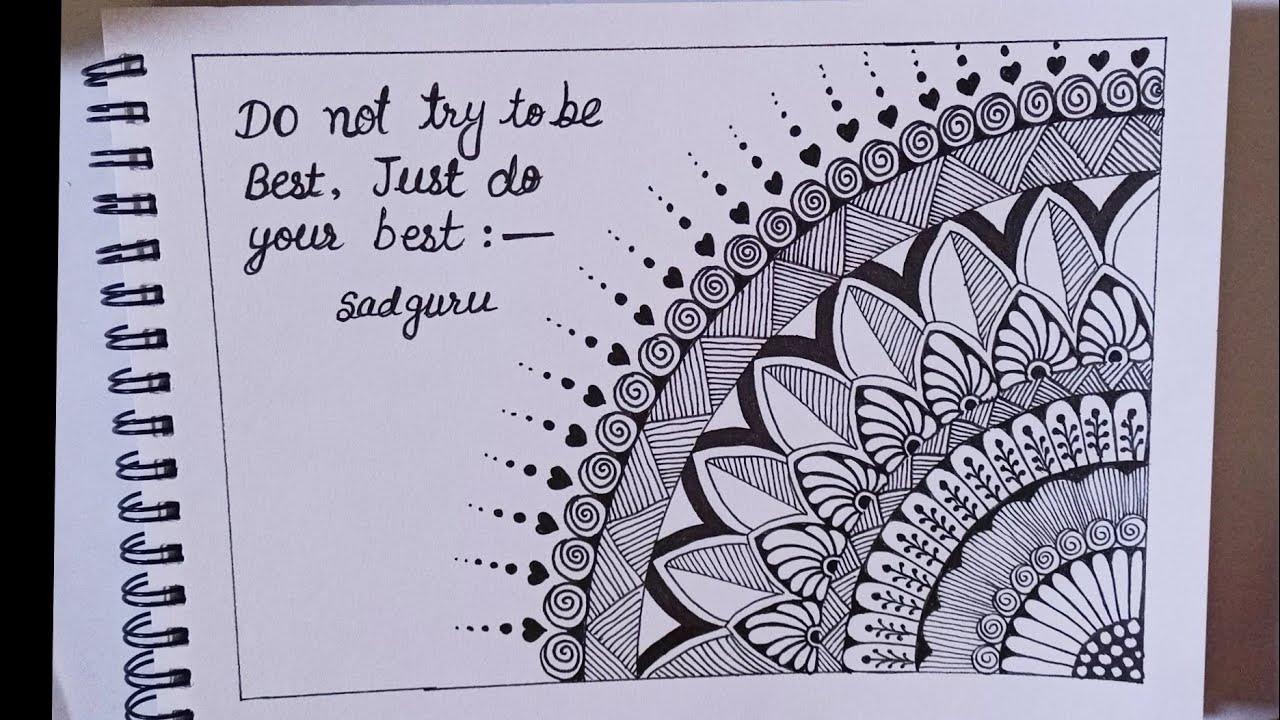 Do not try to be
Best, Just do
your best :—
sadguru